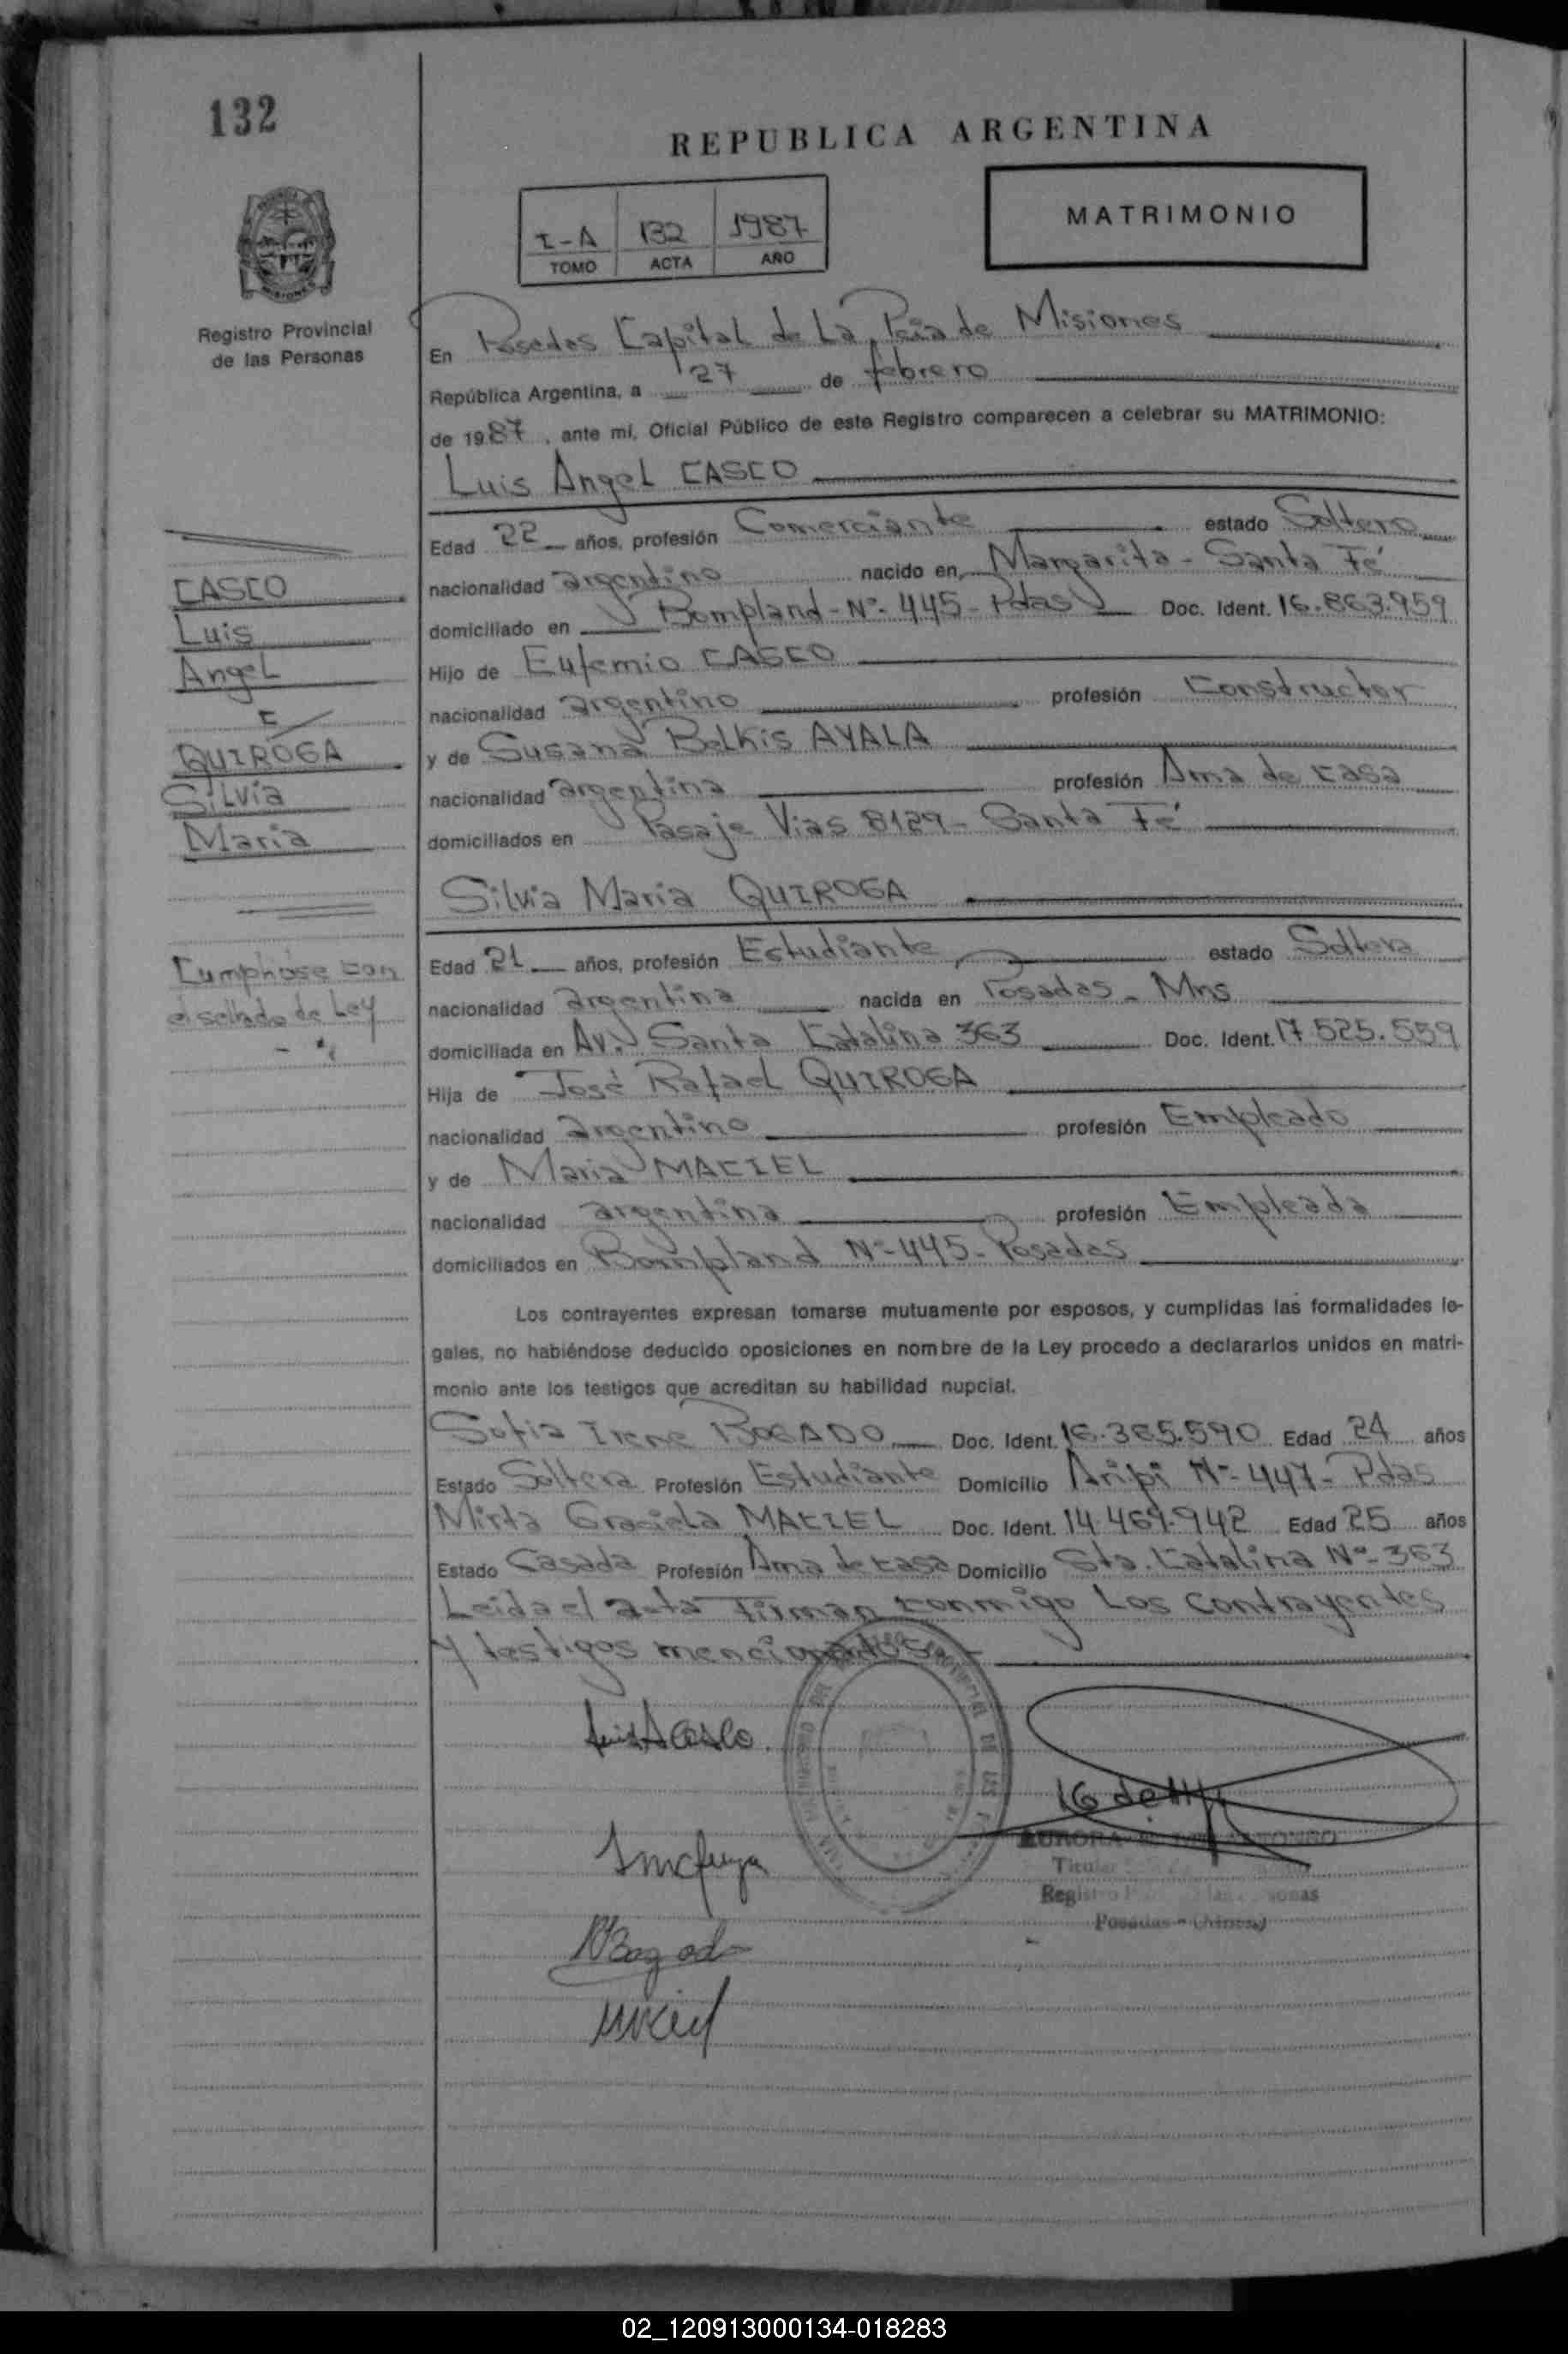 132
REPUBLICA ARGENTINA
MATRIMONIO
I-A 132 1987
TOMO ACTA AÑO
MISIONES
Registro Provincial
de las Personas
En Posadas Capital de La Pcia de Misiones
República Argentina, a 27 de febrero
de 1987, ante mí, Oficial Público de este Registro comparecen a celebrar su MATRIMONIO:
Luis Angel CASCO
Edad 22 años, profesión Comerciante estado Soltero
nacionalidad argentino nacido en Margarita - Santa Fé
domiciliado en Bompland - Nº- 445 - Pdas Doc. Ident. 16.863.959
Hijo de Eufemio CASCO
nacionalidad argentino profesión Constructor
y de Susana Belkis AYALA
nacionalidad argentina profesión Ama de casa
domiciliados en Pasaje Vias 8129 - Santa Fé
Silvia Maria QUIROGA
Edad 21 años, profesión Estudiante estado Soltera
nacionalidad argentina nacida en Posadas - Mns
domiciliada en Av. Santa Catalina 363 Doc. Ident. 17.525.559
Hija de José Rafael QUIROGA
nacionalidad argentino profesión Empleado
y de Maria MACIEL
nacionalidad argentina profesión Empleada
domiciliados en Bompland Nº- 445 - Posadas
Los contrayentes expresan tomarse mutuamente por esposos, y cumplidas las formalidades le-
gales, no habiéndose deducido oposiciones en nombre de la Ley procedo a declararlos unidos en matri-
monio ante los testigos que acreditan su habilidad nupcial.
Sofia Irene BOGADO Doc. Ident. 16.365.590 Edad 24 años
Estado Soltera Profesión Estudiante Domicilio Aripi Nº- 447 - Pdas
Mirta Graciela MACIEL Doc. Ident. 14.469.942 Edad 25 años
Estado Casada Profesión Ama de casa Domicilio Sta. Catalina Nº- 363
Leida el acta firman conmigo Los contrayentes
y testigos mencionados -
CASCO
Luis
Angel
c/
QUIROGA
Silvia
Maria
Cumplióse con
el sellado de Ley
Luis A Casco
Bogado
AURORA
Titular
Registro
Posadas - Misiones
02_120913000134-018283